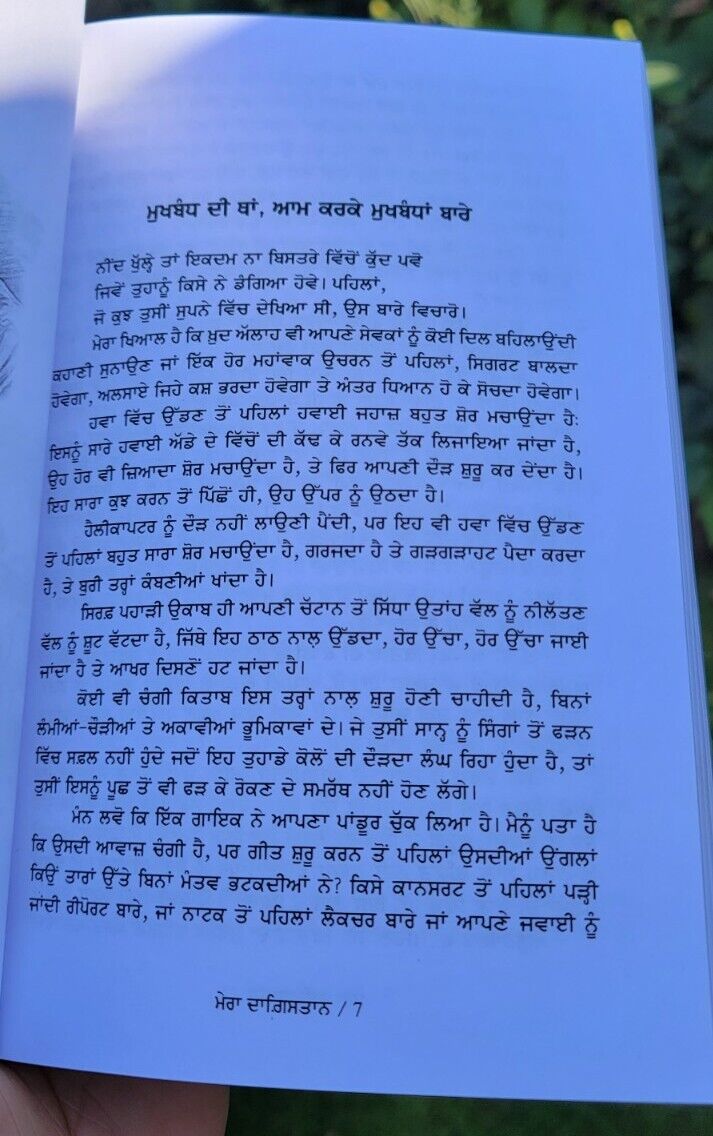 ਮੁਖਬੰਧ ਦੀ ਥਾਂ, ਆਮ ਕਰਕੇ ਮੁਖਬੰਧਾਂ ਬਾਰੇ
ਨੀਂਦ ਖੁੱਲ੍ਹੇ ਤਾਂ ਇਕਦਮ ਨਾ ਬਿਸਤਰੇ ਵਿੱਚੋਂ ਕੁੱਦ ਪਵੋ
ਜਿਵੇਂ ਤੁਹਾਨੂੰ ਕਿਸੇ ਨੇ ਡੰਗਿਆ ਹੋਵੇ। ਪਹਿਲਾਂ,
ਜੋ ਕੁਝ ਤੁਸੀਂ ਸੁਪਨੇ ਵਿੱਚ ਦੇਖਿਆ ਸੀ, ਉਸ ਬਾਰੇ ਵਿਚਾਰੋ।
ਮੇਰਾ ਖਿਆਲ ਹੈ ਕਿ ਖ਼ੁਦ ਅੱਲਾਹ ਵੀ ਆਪਣੇ ਸੇਵਕਾਂ ਨੂੰ ਕੋਈ ਦਿਲ ਬਹਿਲਾਉਂਦੀ
ਕਹਾਣੀ ਸੁਨਾਉਣ ਜਾਂ ਇੱਕ ਹੋਰ ਮਹਾਂਵਾਕ ਉਚਰਨ ਤੋਂ ਪਹਿਲਾਂ, ਸਿਗਰਟ ਬਾਲਦਾ
ਹੋਵੇਗਾ, ਅਲਸਾਏ ਜਿਹੇ ਕਸ਼ ਭਰਦਾ ਹੋਵੇਗਾ ਤੇ ਅੰਤਰ ਧਿਆਨ ਹੋ ਕੇ ਸੋਚਦਾ ਹੋਵੇਗਾ।
ਹਵਾ ਵਿੱਚ ਉੱਡਣ ਤੋਂ ਪਹਿਲਾਂ ਹਵਾਈ ਜਹਾਜ਼ ਬਹੁਤ ਸ਼ੋਰ ਮਚਾਉਂਦਾ ਹੈ:
ਇਸਨੂੰ ਸਾਰੇ ਹਵਾਈ ਅੱਡੇ ਦੇ ਵਿੱਚੋਂ ਦੀ ਕੱਢ ਕੇ ਰਨਵੇ ਤੱਕ ਲਿਜਾਇਆ ਜਾਂਦਾ ਹੈ,
ਉਹ ਹੋਰ ਵੀ ਜ਼ਿਆਦਾ ਸ਼ੋਰ ਮਚਾਉਂਦਾ ਹੈ, ਤੇ ਫਿਰ ਆਪਣੀ ਦੌੜ ਸ਼ੁਰੂ ਕਰ ਦੇਂਦਾ ਹੈ।
ਇਹ ਸਾਰਾ ਕੁਝ ਕਰਨ ਤੋਂ ਪਿੱਛੋਂ ਹੀ, ਉਹ ਉੱਪਰ ਨੂੰ ਉਠਦਾ ਹੈ।
ਹੈਲੀਕਾਪਟਰ ਨੂੰ ਦੌੜ ਨਹੀਂ ਲਾਉਣੀ ਪੈਂਦੀ, ਪਰ ਇਹ ਵੀ ਹਵਾ ਵਿੱਚ ਉੱਡਣ
ਤੋਂ ਪਹਿਲਾਂ ਬਹੁਤ ਸਾਰਾ ਸ਼ੋਰ ਮਚਾਉਂਦਾ ਹੈ, ਗਰਜਦਾ ਹੈ ਤੇ ਗੜਗੜਾਹਟ ਪੈਦਾ ਕਰਦਾ
ਹੈ, ਤੇ ਬੁਰੀ ਤਰ੍ਹਾਂ ਕੰਬਣੀਆਂ ਖਾਂਦਾ ਹੈ।
ਸਿਰਫ਼ ਪਹਾੜੀ ਉਕਾਬ ਹੀ ਆਪਣੀ ਚੱਟਾਨ ਤੋਂ ਸਿੱਧਾ ਉਤਾਂਹ ਵੱਲ ਨੂੰ ਨੀਲੱਤਣ
ਵੱਲ ਨੂੰ ਸ਼ੂਟ ਵੱਟਦਾ ਹੈ, ਜਿੱਥੇ ਇਹ ਠਾਠ ਨਾਲ਼ ਉੱਡਦਾ, ਹੋਰ ਉੱਚਾ, ਹੋਰ ਉੱਚਾ ਜਾਈ
ਜਾਂਦਾ ਹੈ ਤੇ ਆਖਰ ਦਿਸਣੋਂ ਹਟ ਜਾਂਦਾ ਹੈ।
ਕੋਈ ਵੀ ਚੰਗੀ ਕਿਤਾਬ ਇਸ ਤਰ੍ਹਾਂ ਨਾਲ਼ ਸ਼ੁਰੂ ਹੋਣੀ ਚਾਹੀਦੀ ਹੈ, ਬਿਨਾਂ
ਲੰਮੀਆਂ-ਚੌੜੀਆਂ ਤੇ ਅਕਾਵੀਆਂ ਭੂਮਿਕਾਵਾਂ ਦੇ। ਜੇ ਤੁਸੀਂ ਸਾਨ੍ਹ ਨੂੰ ਸਿੰਗਾਂ ਤੋਂ ਫੜਨ
ਵਿੱਚ ਸਫ਼ਲ ਨਹੀਂ ਹੁੰਦੇ ਜਦੋਂ ਇਹ ਤੁਹਾਡੇ ਕੋਲੋਂ ਦੀ ਦੌੜਦਾ ਲੰਘ ਰਿਹਾ ਹੁੰਦਾ ਹੈ, ਤਾਂ
ਤੁਸੀਂ ਇਸਨੂੰ ਪੂਛ ਤੋਂ ਵੀ ਫੜ ਕੇ ਰੋਕਣ ਦੇ ਸਮਰੱਥ ਨਹੀਂ ਹੋਣ ਲੱਗੇ।
ਮੰਨ ਲਵੋ ਕਿ ਇੱਕ ਗਾਇਕ ਨੇ ਆਪਣਾ ਪਾਂਡੂਰ ਚੁੱਕ ਲਿਆ ਹੈ। ਮੈਨੂੰ ਪਤਾ ਹੈ
ਕਿ ਉਸਦੀ ਆਵਾਜ਼ ਚੰਗੀ ਹੈ, ਪਰ ਗੀਤ ਸ਼ੁਰੂ ਕਰਨ ਤੋਂ ਪਹਿਲਾਂ ਉਸਦੀਆਂ ਉਂਗਲਾਂ
ਕਿਉਂ ਤਾਰਾਂ ਉੱਤੇ ਬਿਨਾਂ ਮੰਤਵ ਭਟਕਦੀਆਂ ਨੇ? ਕਿਸੇ ਕਾਨਸਰਟ ਤੋਂ ਪਹਿਲਾਂ ਪੜ੍ਹੀ
ਜਾਂਦੀ ਰੀਪੋਰਟ ਬਾਰੇ, ਜਾਂ ਨਾਟਕ ਤੋਂ ਪਹਿਲਾਂ ਲੈਕਚਰ ਬਾਰੇ ਜਾਂ ਆਪਣੇ ਜਵਾਈ ਨੂੰ
ਮੇਰਾ ਦਾਗ਼ਿਸਤਾਨ / 7